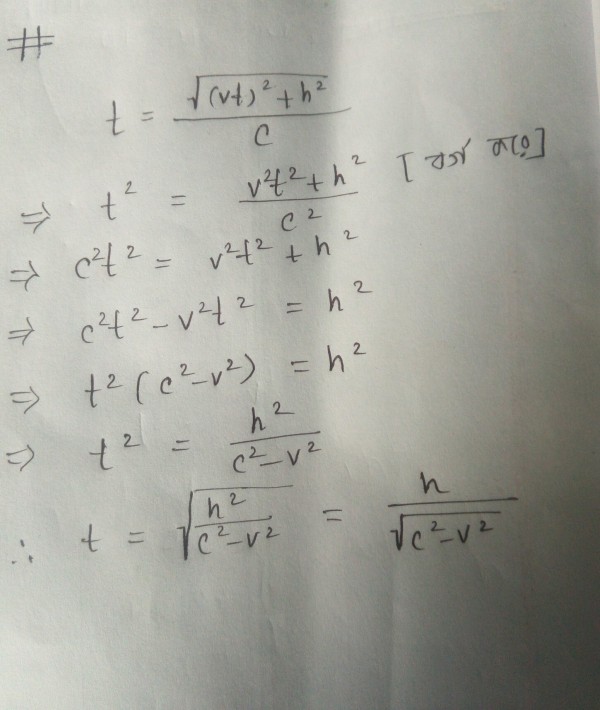 #
t = √((vt)² + h²) / c
⇒ t² = (v²t² + h²) / c² [বর্গ করে]
⇒ c²t² = v²t² + h²
⇒ c²t² - v²t² = h²
⇒ t² (c² - v²) = h²
⇒ t² = h² / (c² - v²)
∴ t = √(h² / (c² - v²)) = h / √(c² - v²)